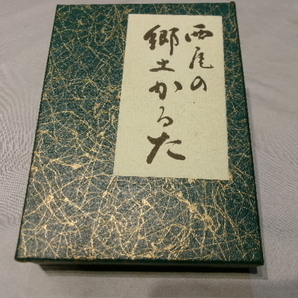 西尾の
郷土かるた